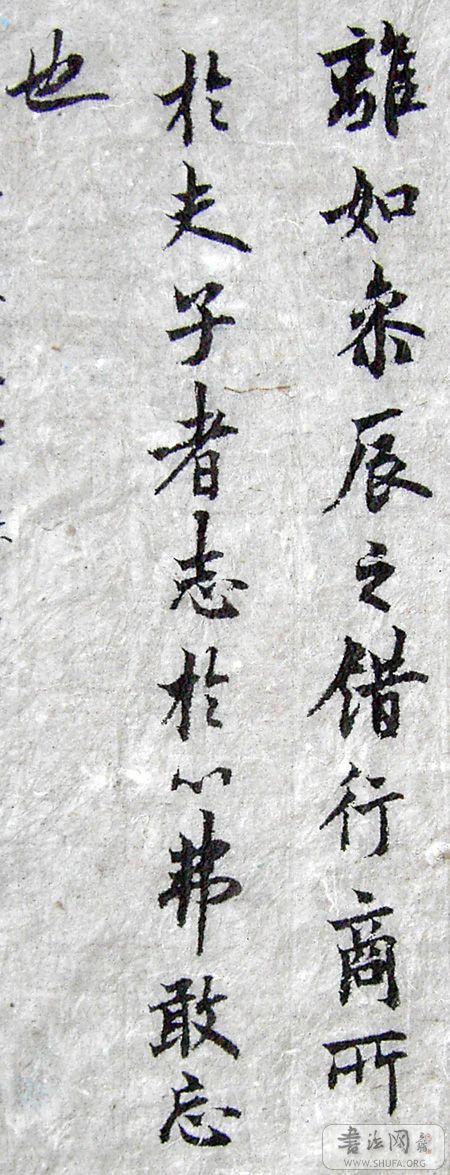 離如叅辰之錯行商所
於夫子者志於心弗敢忘
也
書法网
WWW.SHUFA.ORG